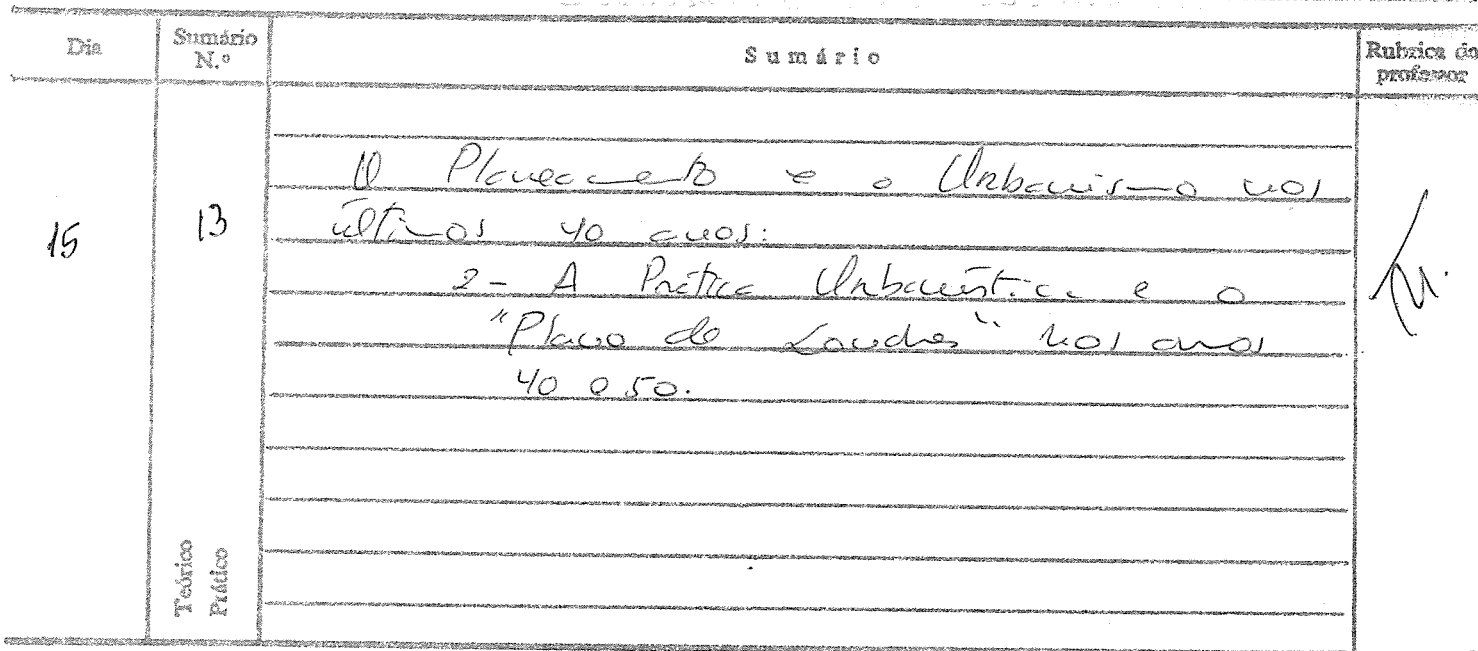 Dia
Sumário N.º
Sumário
Rubrica do professor
15
13
O Planeamento e o Urbanismo nos
últimos 40 anos:
2 - A Prática Urbanística e o
"Plano de Londres" nos anos
40 e 50.
Teórico
Prático